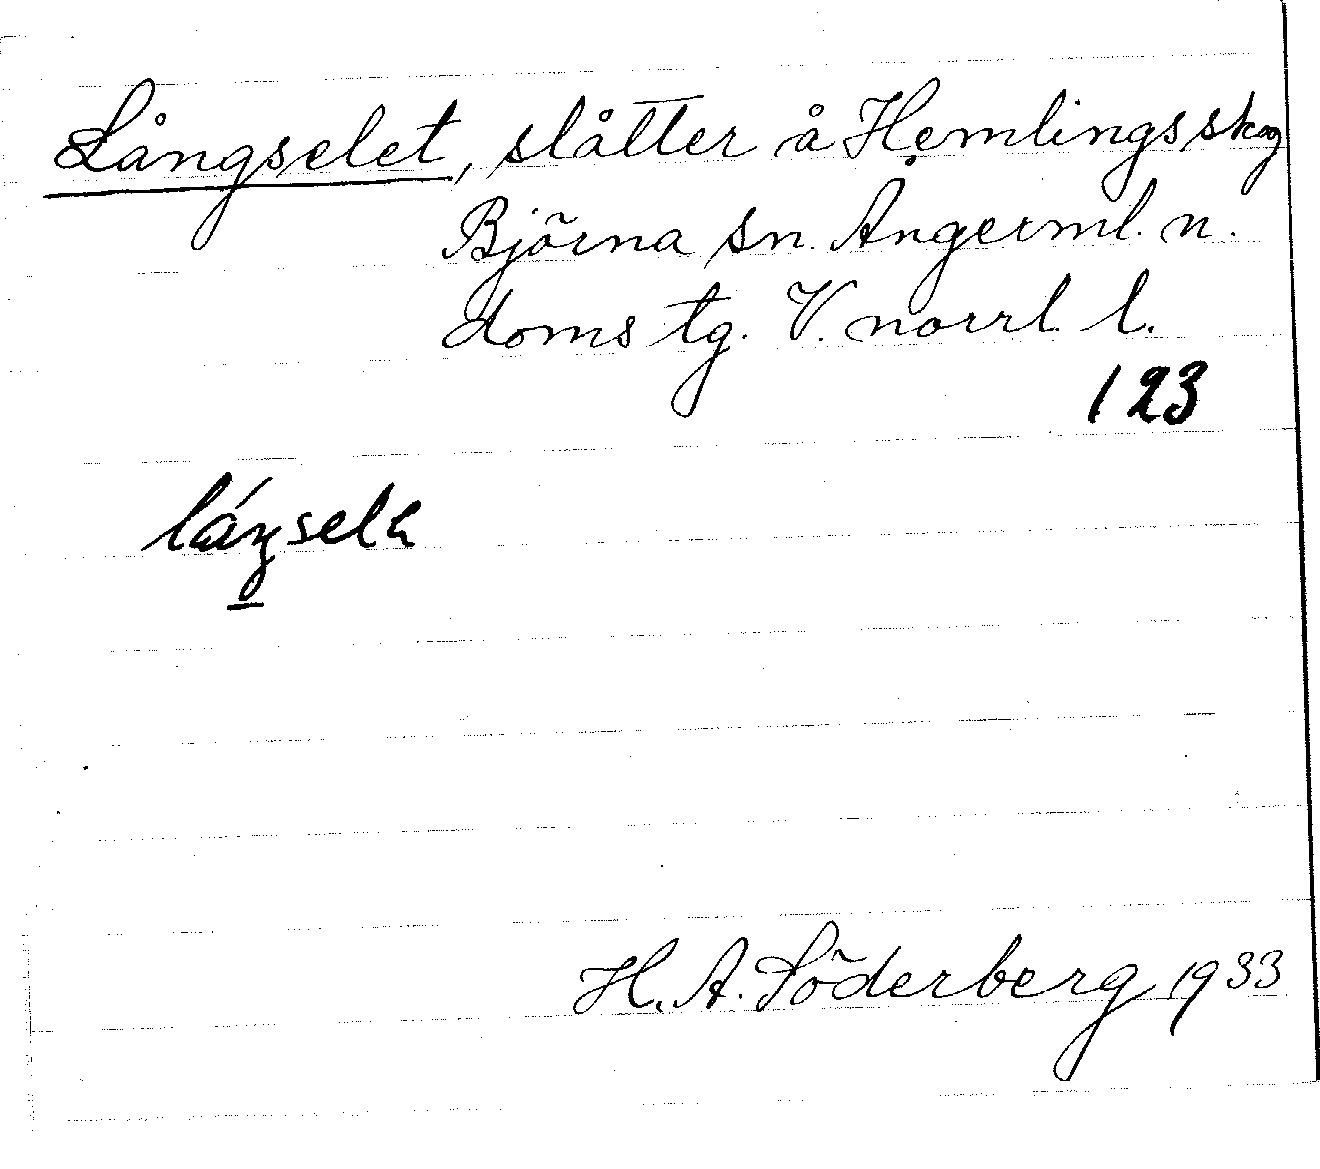 Långselet, slåtter å Hemlingsskog
Björna sn. Ångerml. n.
doms tg. V. norrl. l.
123
H. A. Söderberg 1933